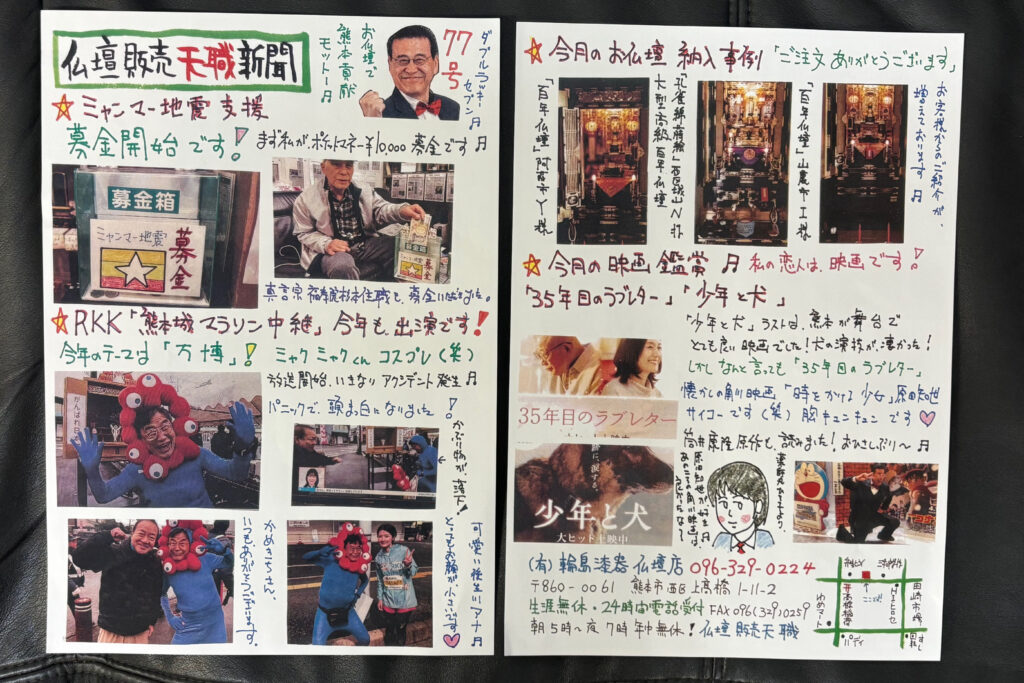 仏壇販売天職新聞
お仏壇で
熊本貢献
モットー♬
77号
ダブルラッキーセブン♬
☆ミャンマー地震支援
募金開始です! まず私が、ポケットマネー¥10,000募金です♬
募金箱
ミャンマー地震
募金
☆RKK「熊本城マラソン中継」今年も出演です!
今年のテーマは「万博」! ミャクミャクくんコスプレ(笑)
放送開始、いきなりアクシデント発生♬
パニックで、頭真っ白になりました!
かぶり物が、落下!
がんばれ
かめきちさん、
いつもありがとうございます。
可愛い後生川アナ♬
とってもお顔が小さいです♥
☆今月のお仏壇 納入事例「ご注文ありがとうございます」
「百年仏壇」阿蘇市Y様
大型高級百年仏壇
「百年仏壇」山鹿市I様
お客様からのご紹介が、
増えております♬
☆今月の映画鑑賞♬ 私の恋人は、映画です!
「35年目のラブレター」「少年と犬」
「少年と犬」ラストは、熊本が舞台で
とても良い映画でした!犬の演技が、凄かった!
しかしなんと言っても「35年目のラブレター」
懐かしの角川映画「時をかける少女」原田知世
サイコーです(笑)胸キュンキュンです♥
筒井康隆原作も、読みました!おひさしぶり〜♬
35年目のラブレター
少年と犬
大ヒット上映中
(有)輪島漆器仏壇店 096-329-0224
〒860-0061 熊本市西区上高橋1-11-2
生涯無休・24時間電話受付 FAX096(329)0259
朝5時〜夜7時年中無休!仏壇販売天職
田崎市場
ゆめマート